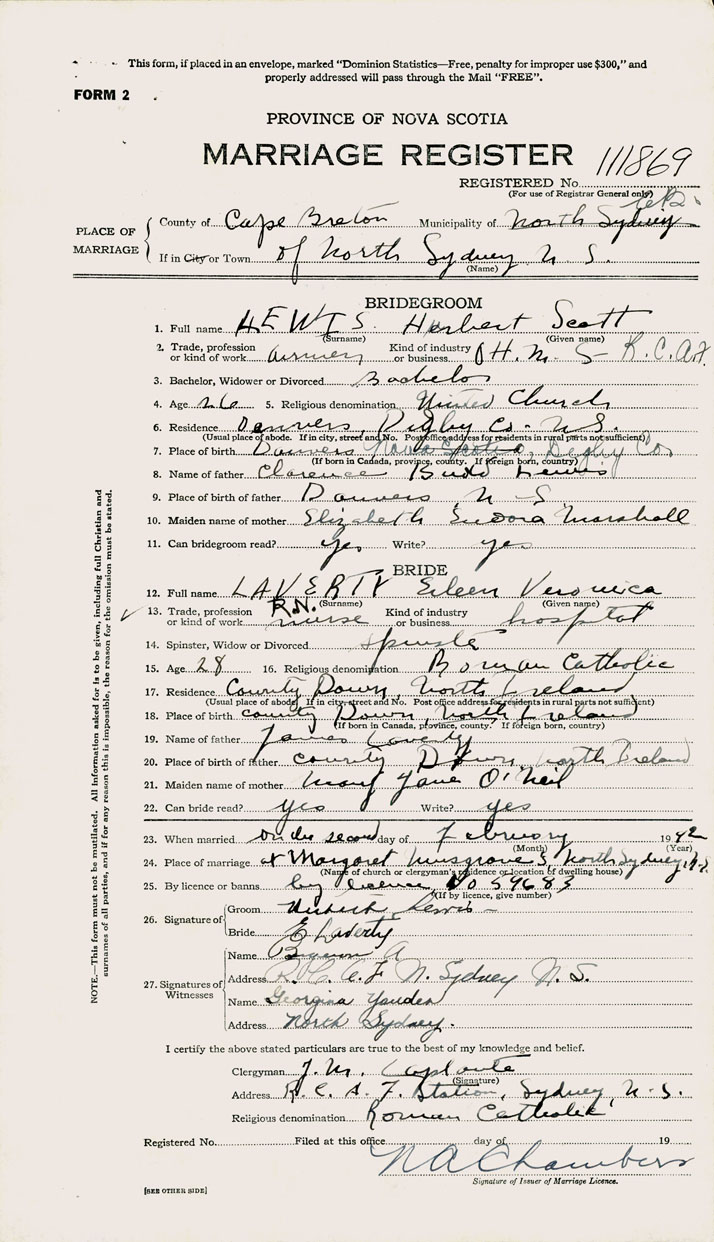 This form, if placed in an envelope, marked "Dominion Statistics—Free, penalty for improper use $300," and
properly addressed will pass through the Mail "FREE".
FORM 2
PROVINCE OF NOVA SCOTIA
MARRIAGE REGISTER 111869
REGISTERED No.
(For use of Registrar General only)
PLACE OF MARRIAGE
County of Cape Breton Municipality of North Sydney
If in City or Town of North Sydney N. S.
(Name)
BRIDEGROOM
1. Full name LEWIS Herbert Scott
(Surname) (Given name)
2. Trade, profession or kind of work Kind of industry or business H. M. S - R. C. A. F.
3. Bachelor, Widower or Divorced Bachelor
4. Age 26 5. Religious denomination United Church
6. Residence Danvers, Digby Co - N.S.
(Usual place of abode. If in city, street and No. Post office address for residents in rural parts not sufficient)
7. Place of birth Danvers Nova Scotia, Digby Co.
(If born in Canada, province, county. If foreign born, country)
8. Name of father Clarence Lewis
9. Place of birth of father Danvers N S
10. Maiden name of mother Elizabeth Eudora Marshall
11. Can bridegroom read? yes Write? yes
BRIDE
12. Full name LAVERTY Eileen Veronica
(Surname) (Given name)
13. Trade, profession or kind of work R.N. nurse Kind of industry or business hospital
14. Spinster, Widow or Divorced Spinster
15. Age 28 16. Religious denomination Roman Catholic
17. Residence County Down, North Ireland
(Usual place of abode. If in city, street and No. Post office address for residents in rural parts not sufficient)
18. Place of birth County Down North Ireland
(If born in Canada, province, county. If foreign born, country)
19. Name of father James Laverty
20. Place of birth of father County Down, North Ireland
21. Maiden name of mother Mary Jane O'Neil
22. Can bride read? yes Write? yes
23. When married on the second day of February 1942
(Month) (Year)
24. Place of marriage at Margaret Musgrove's North Sydney, N.S.
(Name of church or clergyman's residence or location of dwelling house)
25. By licence or banns by licence No 59683
(If by licence, give number)
26. Signature of
Groom Herbert Lewis
Bride E Laverty
27. Signatures of Witnesses
Name A
Address R. C. A. F N. Sydney N. S.
Name Georgina Youden
Address North Sydney.
I certify the above stated particulars are true to the best of my knowledge and belief.
Clergyman J. M. Laplante
(Signature)
Address R. C. A. F Station, Sydney, N. S.
Religious denomination Roman Catholic
Registered No. Filed at this office day of 19
N A Chambers
Signature of Issuer of Marriage Licence.
[SEE OTHER SIDE]
NOTE.—This form must not be mutilated. All information asked for is to be given, including full Christian and
surnames of all parties, and if for any reason this is impossible, the reason for the omission must be stated.